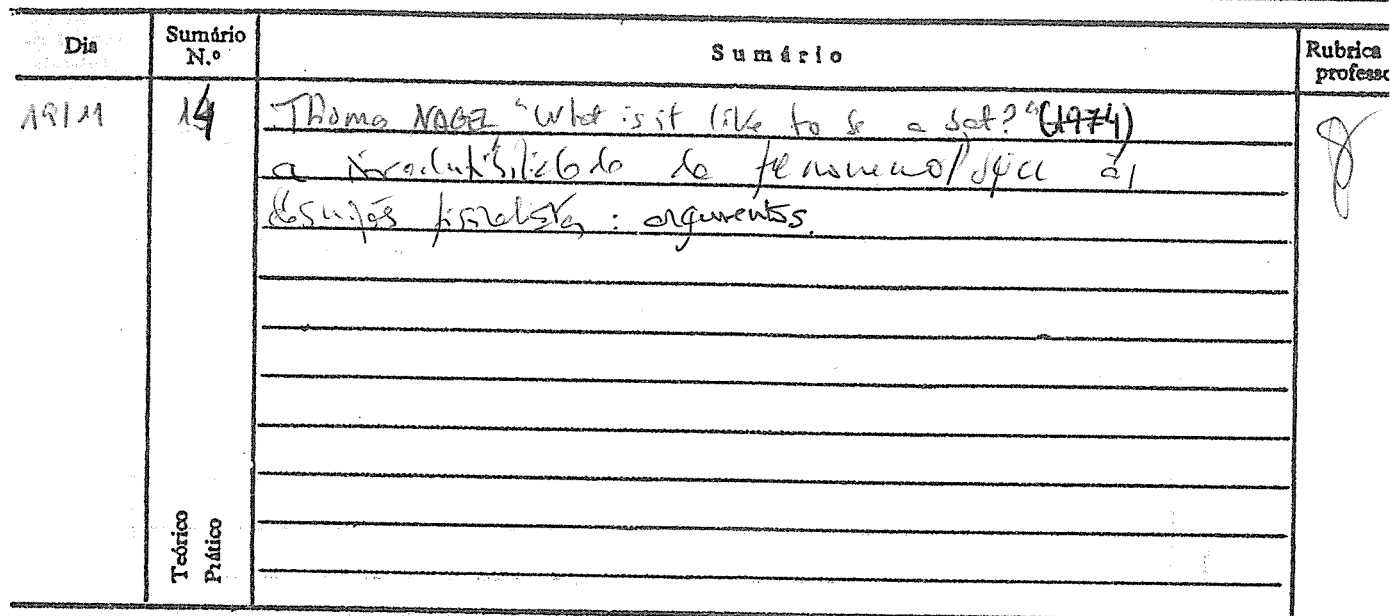 Dia Sumário N.º Sumário Rubrica professo
19/11 14 Thomas NAGEL, "What is it like to be a bat?" (1974)
a irredutibilidade do fenomenológico às
descrições fisicalistas: argumentos.
Teórico
Prático